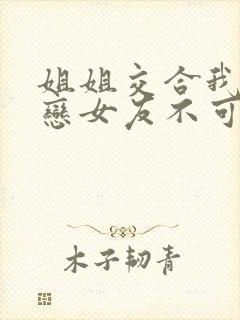 姐姐交合我
戀女友不可
木子韧青